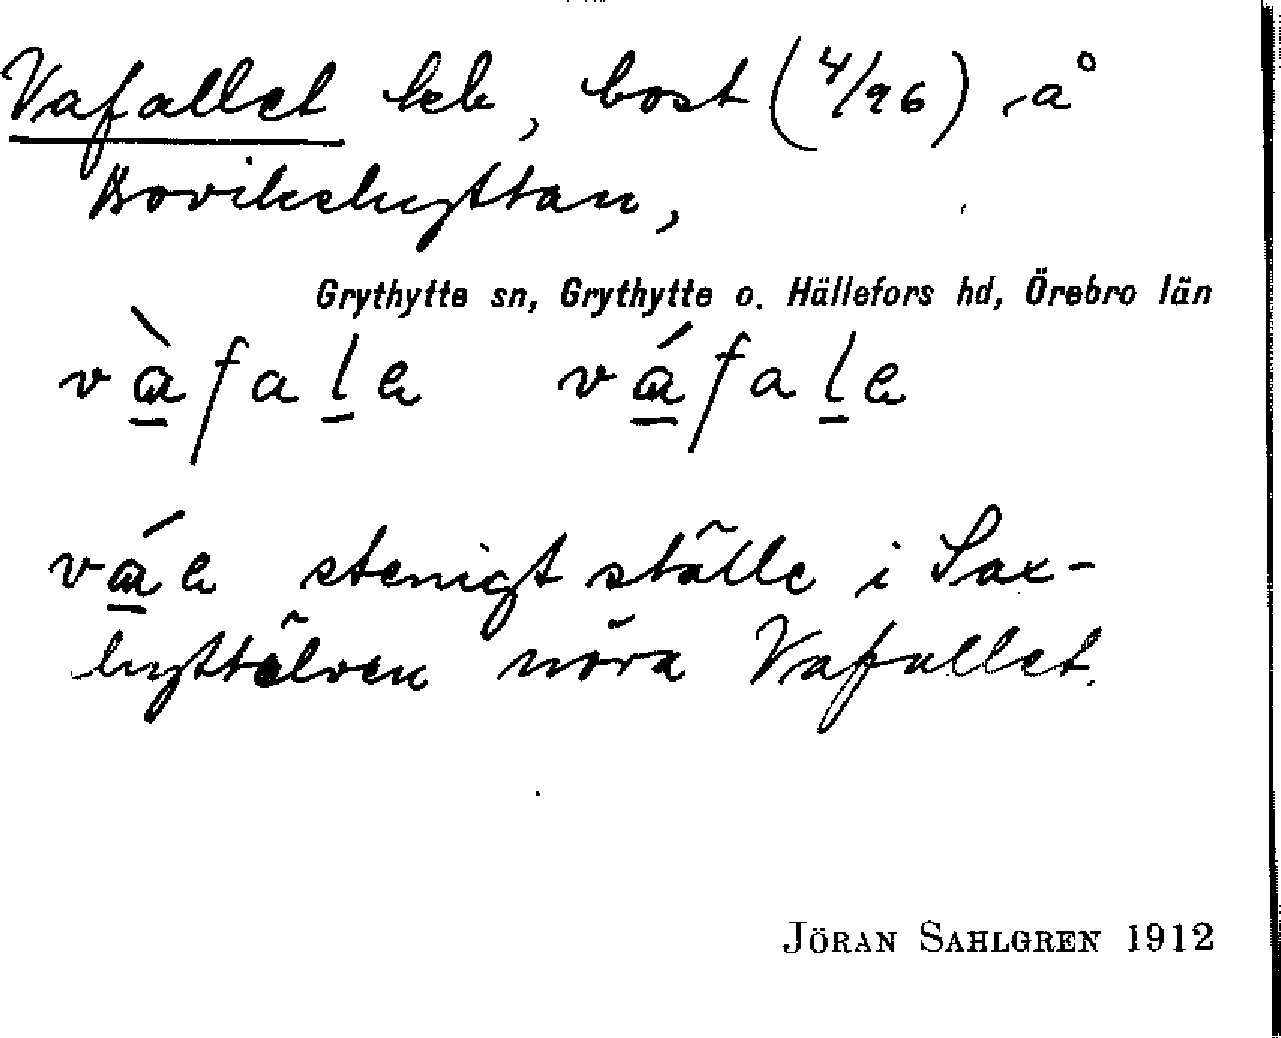 Vafallet lcb, bost (4/96) å
Bovikshyttan,
Grythytte sn, Grythytte o. Hällefors hd, Örebro län
vàfale váfale
váe stenigt ställe i Sax-
hyttälven nära Vafallet.
JÖRAN SAHLGREN 1912